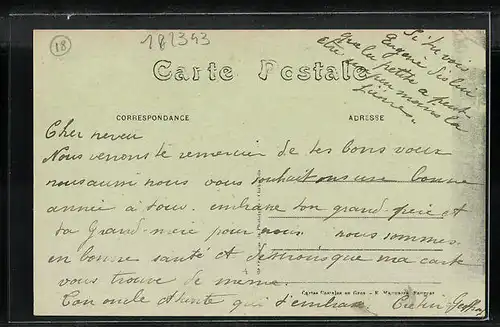 18
181343
Si tu vois
Eugénie dis lui
que la petite a peut
être un peu moins la
fièvre.
Carte Postale
CORRESPONDANCE
ADRESSE
Cher neveu
Nous venons te remercier de tes bons voeux
nous aussi nous vous souhaitons une bonne
année à tous. embrasse ton grand-père et
ta Grand-mère pour nous. nous sommes.
en bonne santé et desirons que ma carte
vous trouve de même.
Ton oncle et tante qui t'embrasse